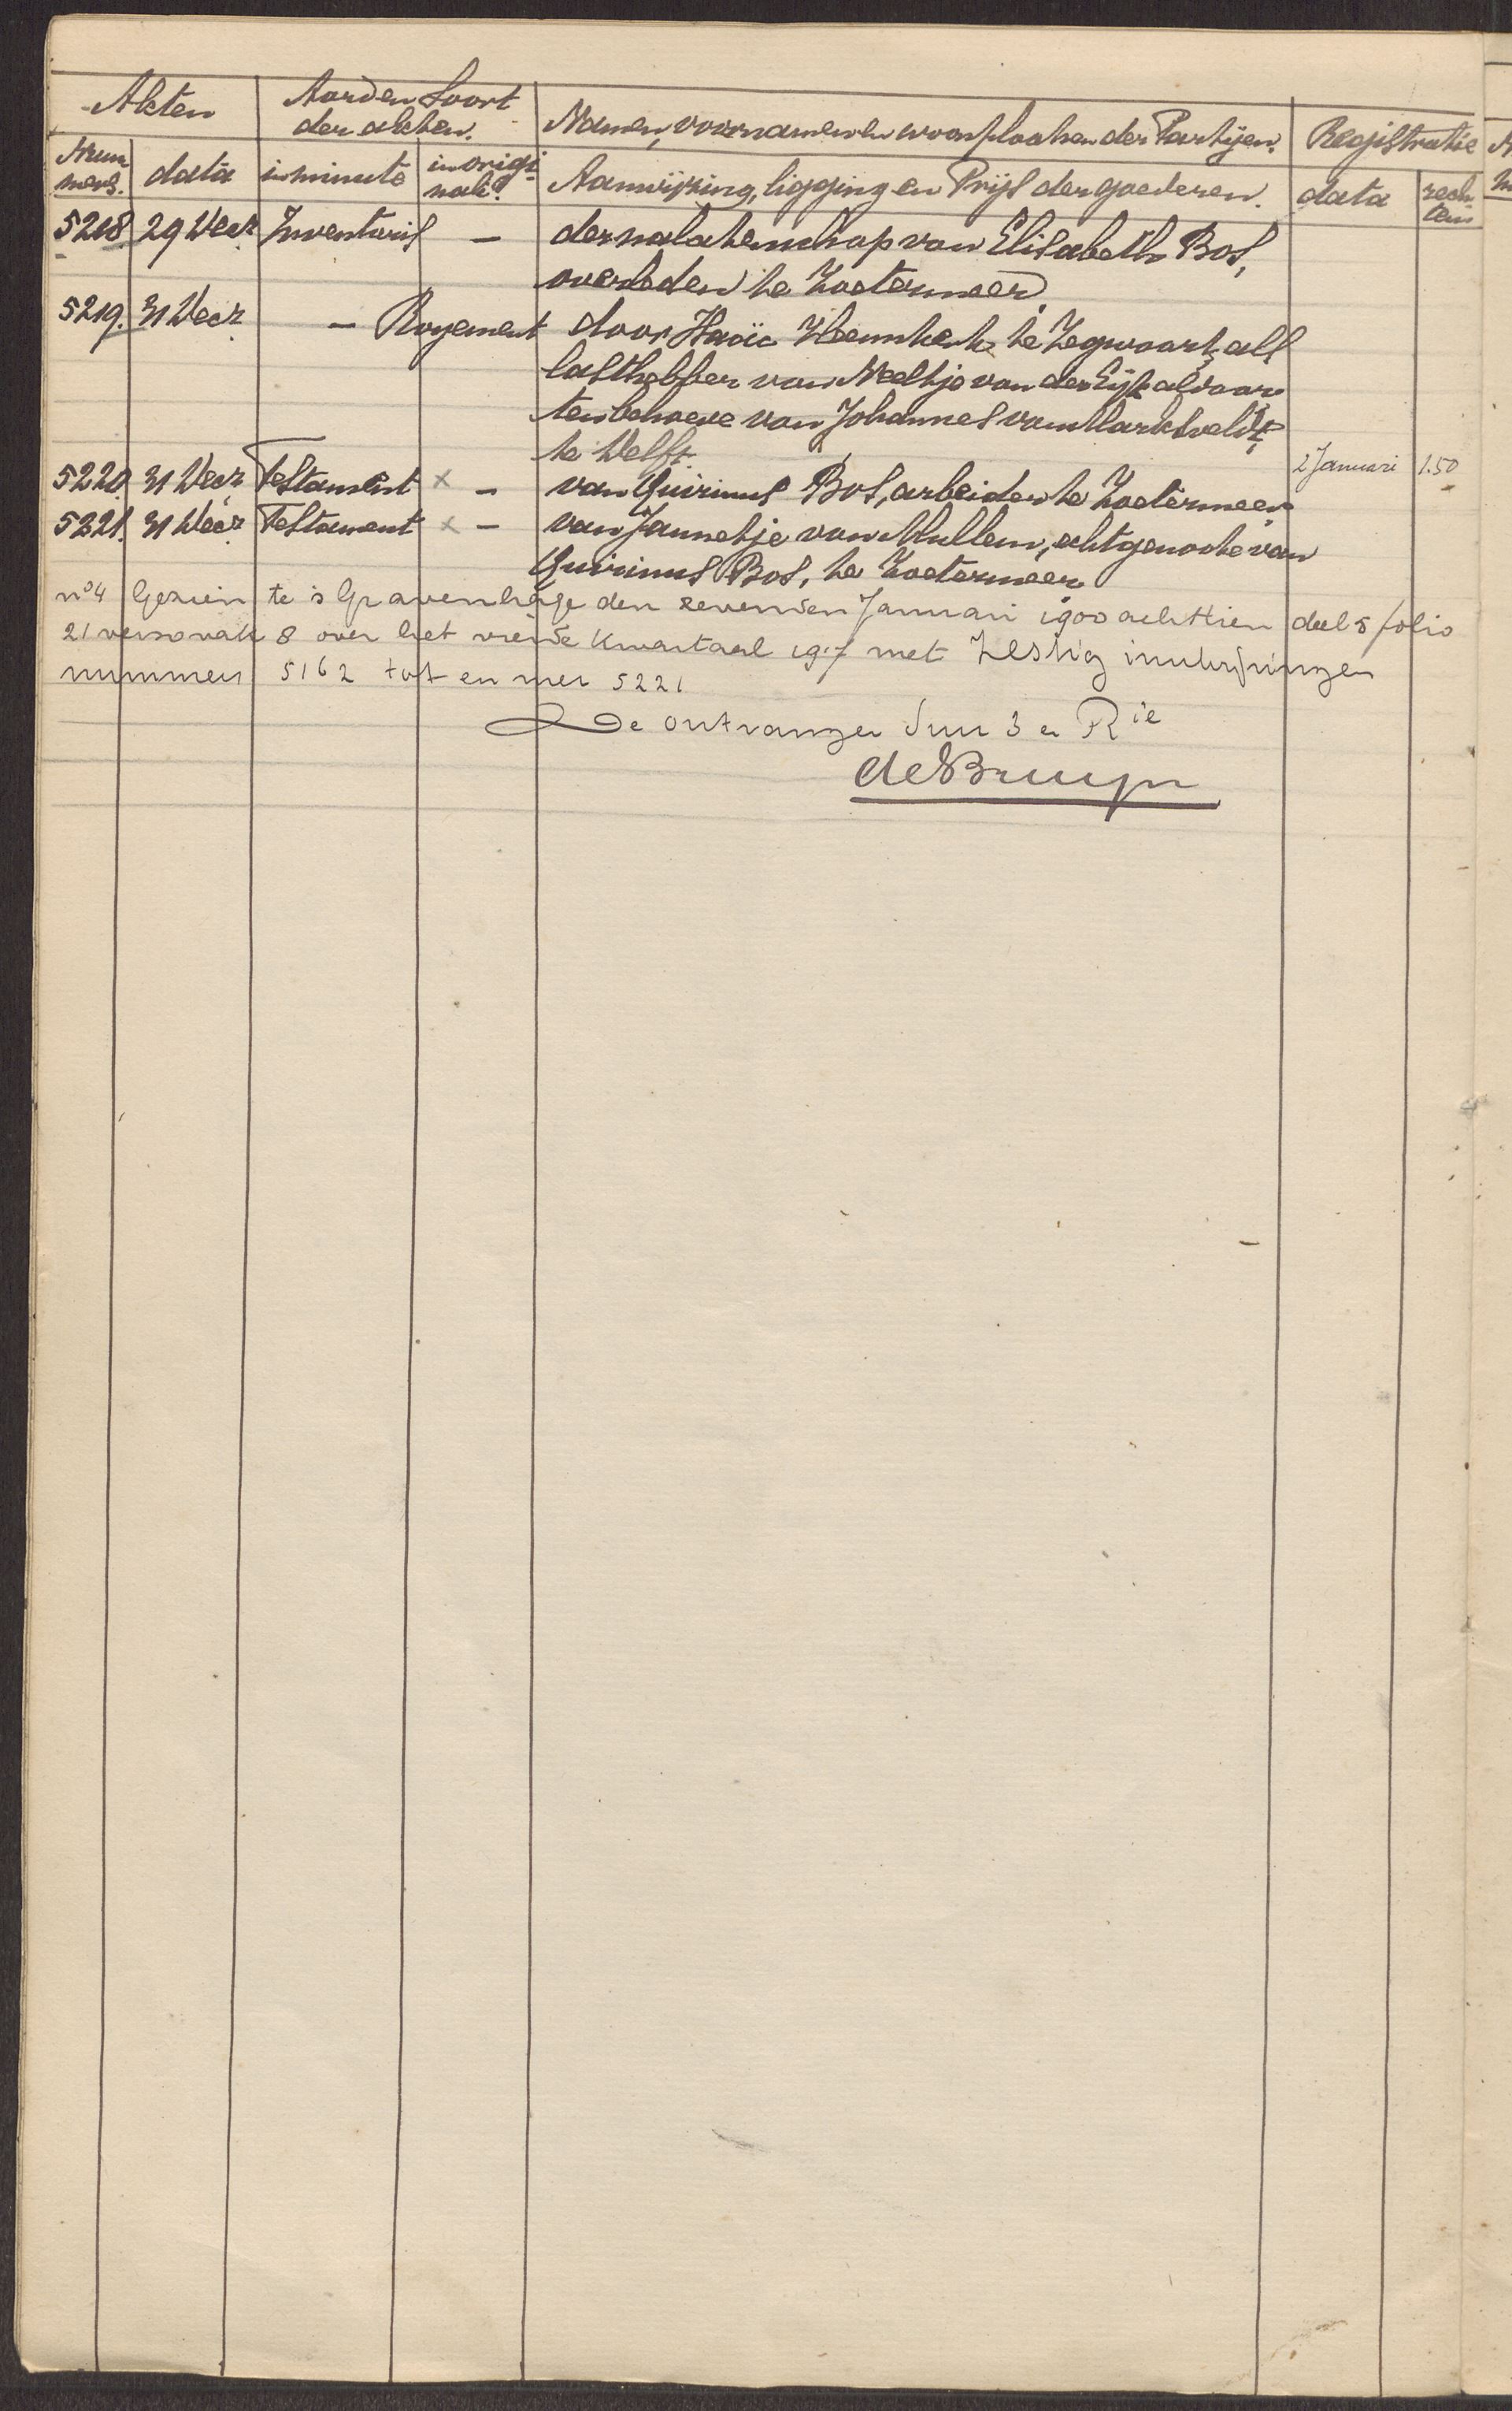 Akten Aard en Soort der akten. Namen, voornamen en woonplaatsen der Partijen. Registratie
Nummers. data in minute in originali Aanwijzing, ligging en Prijs der goederen. data rechten
5218 29 Decr Inventaris — der nalatenschap van Elisabeth Bos,
overleden te Zoetermeer
5219. 31 Decr — Royement door te Zegwaart, als
lasthebber van Neeltje van der Eijk aldaar
ten behoeve van Johannes van Marktveldt,
te Delft. 2 Januari 1.50
5220. 31 Decr Testament x — van Quirinus Bos, arbeider te Zoetermeer
5221. 31 Decr Testament x — van Jannetje van Mullem, echtgenoote van
Quirinus Bos, te Zoetermeer
no 4 Gezien te 's Gravenhage den zevenden Januari 1900 achttien deel 5 folio
21 verso vak 8 over het vierde kwartaal 1917 met zestig inschrijvingen
nummers 5162 tot en met 5221
De ontvanger Succ 3 en Rie
de Bruyn